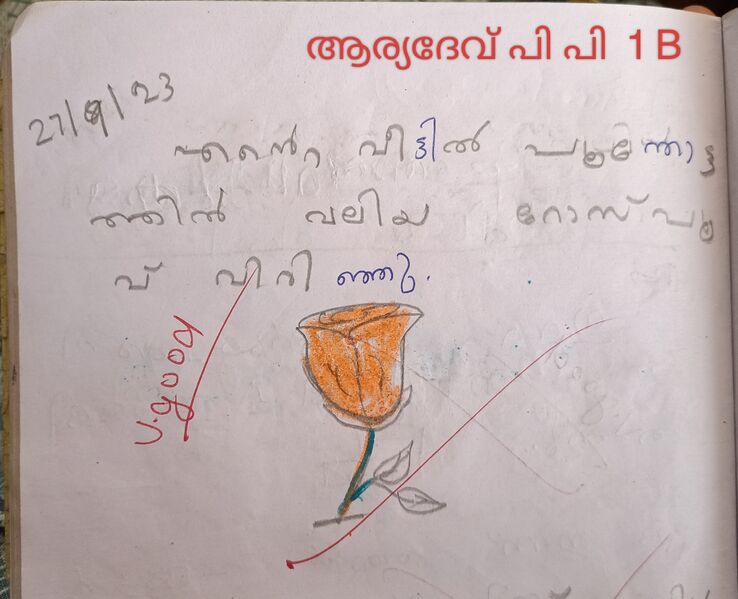 ആര്യദേവ് പി പി 1 B
27/9/23
എൻ്റെ വീട്ടിൽ പൂന്തോട്ട
ത്തിൽ വലിയ റോസ് പൂ
വ് വിരിഞ്ഞു.
v.good